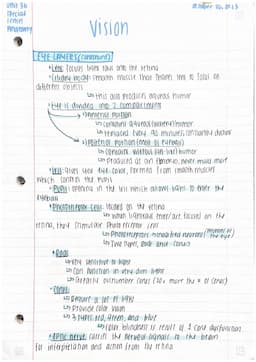 Unit 3b
Special
Senses
Anatomy
October 20, 2013
Vision
EYE LAYERS (continued)
•Lens: focuses light rays onto the retina
•Ciliary body: smooth muscle that causes lens to focus on
different objects
↳ this also produces aqueous humor
•Eye is divided into 2 compartments
↳ Anterior portion
↳ contains aqueous (watery) humor
↳ replaced every 90 minutes, constantly
↳ Posterior portion (most of eyeball)
↳ contains vitreous humor
↳ produced as an embryo, never made more
•Iris: gives you eye color, formed from smooth muscles
which control the pupil
•Pupil: opening in the iris which allows light to enter the
eyeball
•Photoreceptor Cells: located on the retina
↳ when light rays enter/are focused on the
retina, they stimulate photoreceptor cells
↳ Photoreceptors = modified neurons
↳ Two types, rods and cones
•Rods
↳ very sensitive to light
↳ can function in very dim light
↳ greatly outnumber cones (20x more the # of cones)
•Cones
↳ Require a lot of light
↳ Provide color vision
↳ 3 types: red, green, and blue
↳ color blindness is result of 1 cone dysfunction
•Optic nerve: carries the nervous signals to the brain
for interpretation and action from the retina